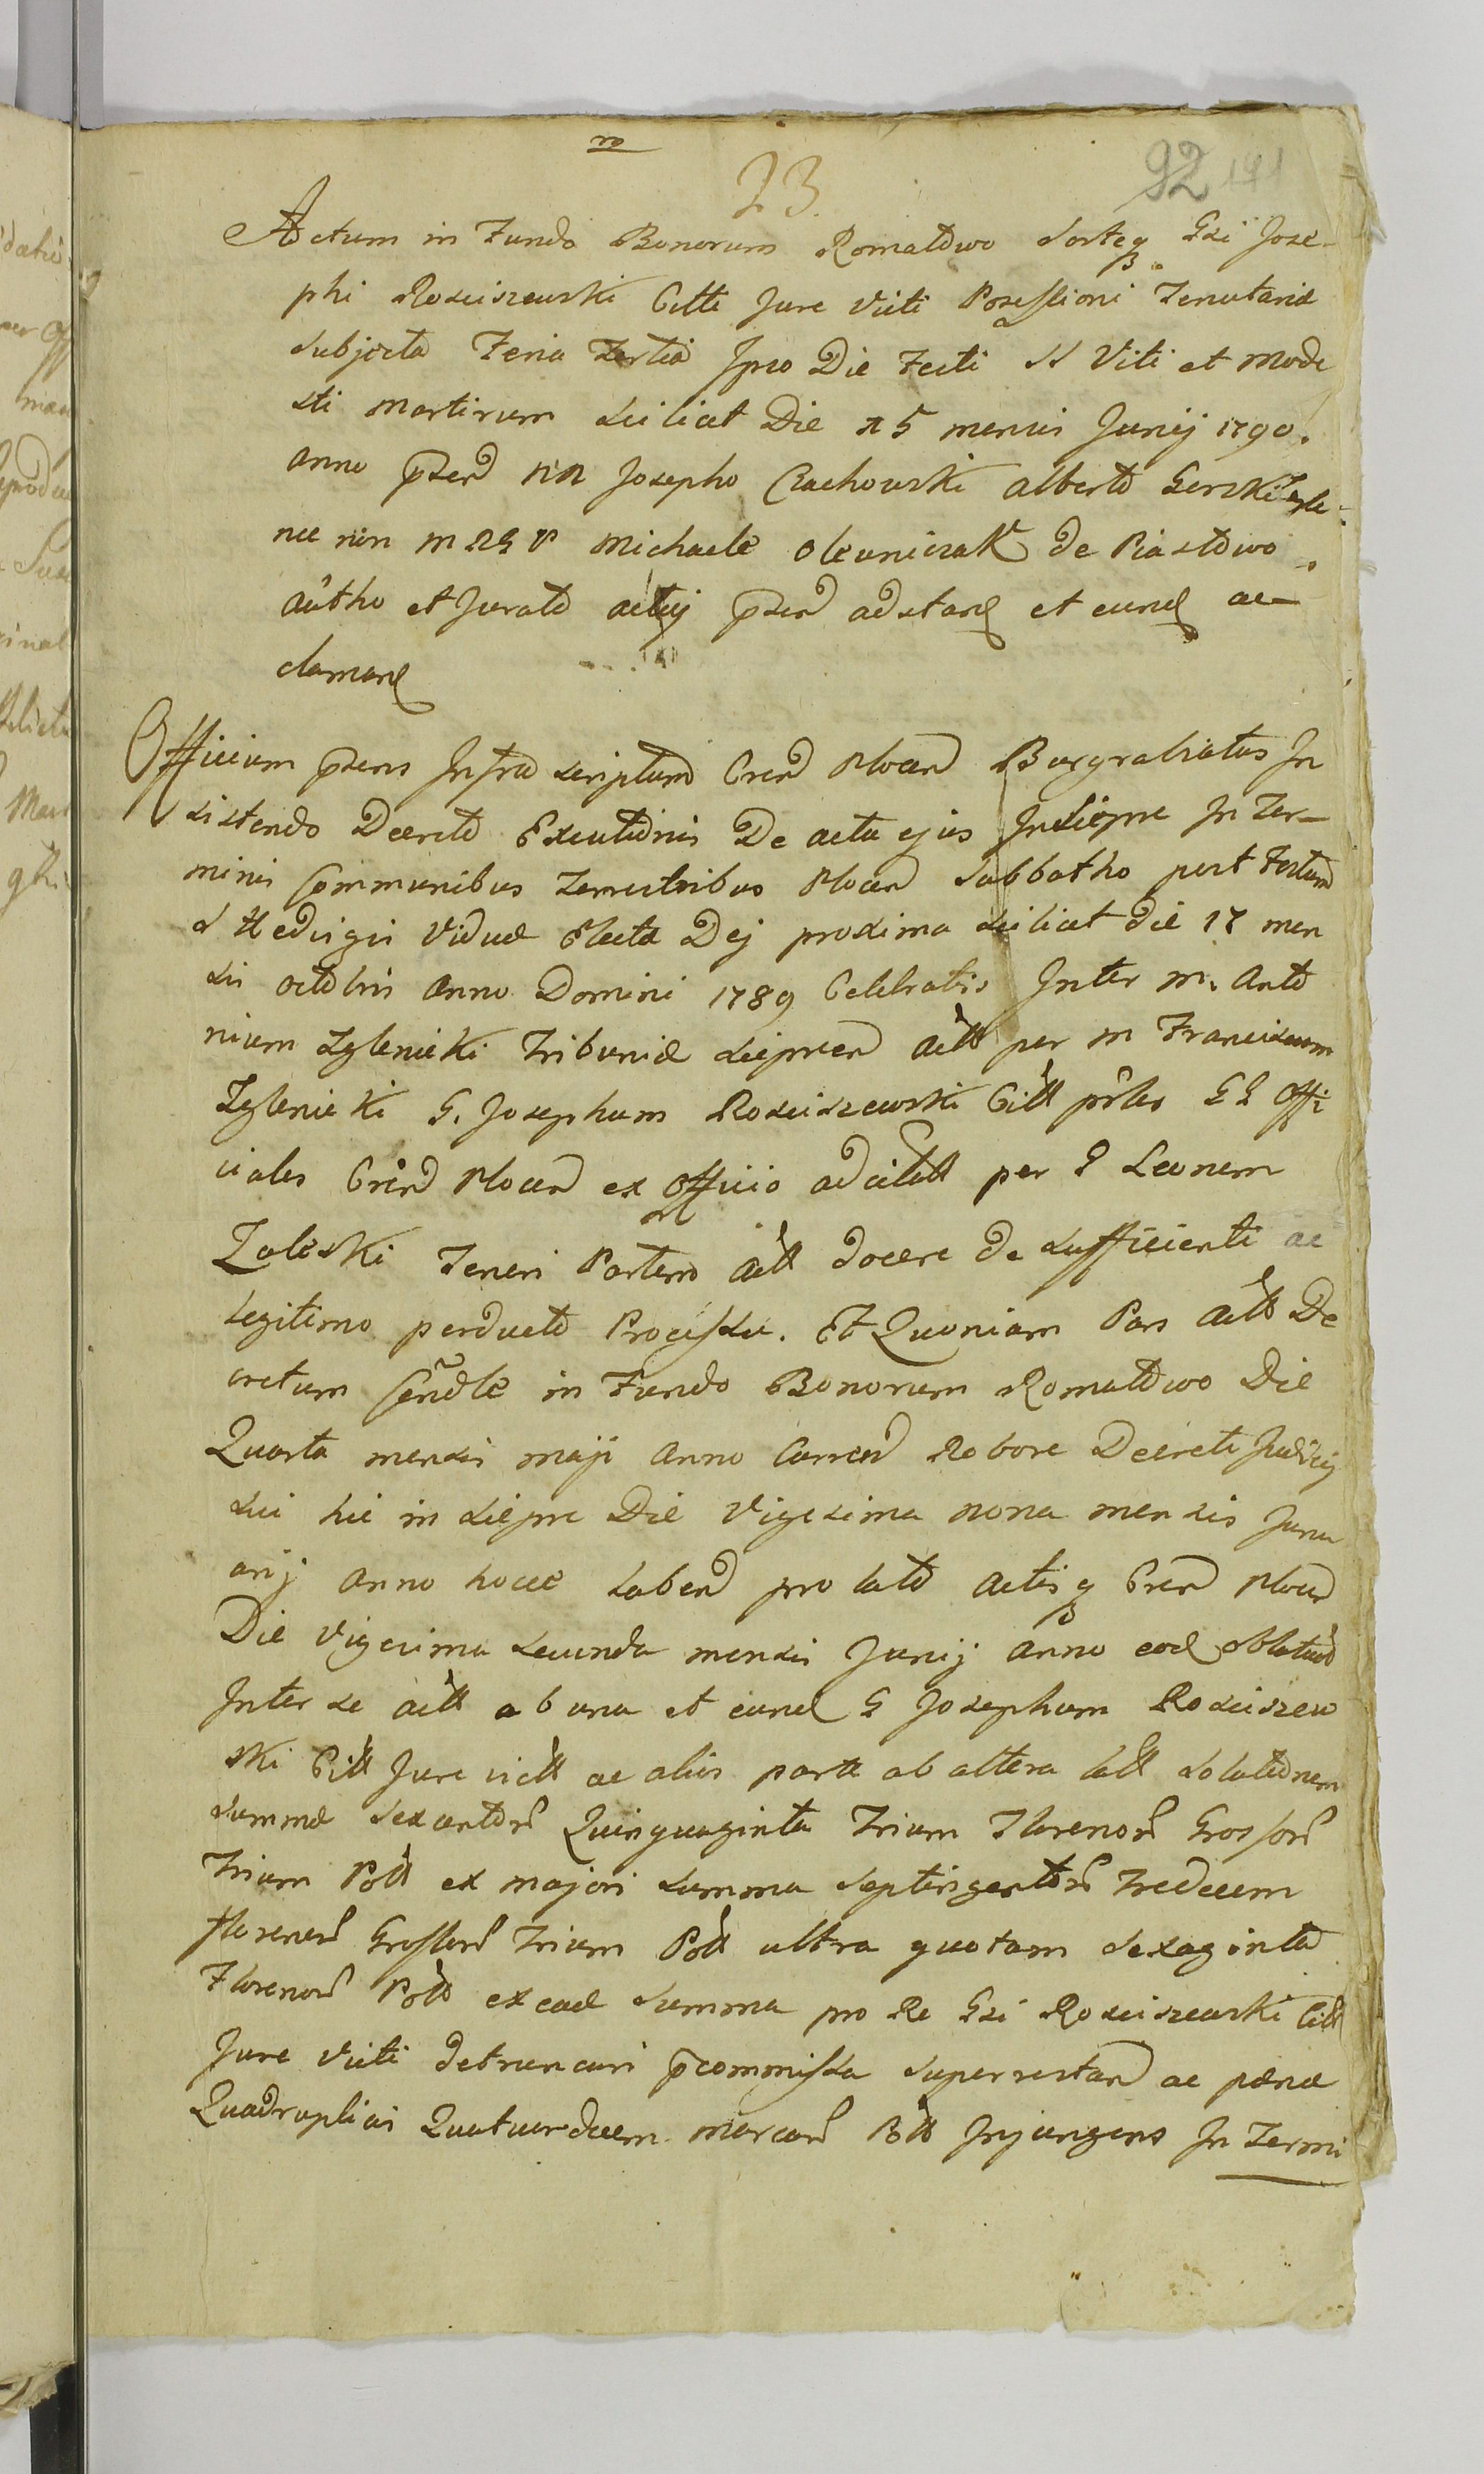 ro
23.
92 191
Actum in Fundo Bonorum Romatowo Sorteq Gsi Jose-
phi Rosciszewski Citti Jure Victi Possessioni Tenutariæ
Subjecta Feria Tertia Ipso Die Festi SS Viti et Mode
sti Martirum Scilicet Die 15 mensis Junij 1790.
anno psen NN Josepho Czachowski Alberto Gerski Zgle-
nec non M Michaele Olewniczak de Piastowo
autho et Jurato actuj psen adstan et eund ac-
claman
Officium psens Infra scriptum Cren Plocen Burgrabiatus In
sistendo Decreto Executionis De actu ejus In Siepre In Ter-
minis Communibus Terrestribus Plocen Sabbatho post Festum
S Hedvigis Viduæ Electæ Dej proxima Scilicet die 17 men
sis octobris Anno Domini 1789 Celebratis Inter M. Anto
nium Zglenicki Tribunid Sieprcen Actt per M Franciscum
Zglenicki G. Josephum Rosciszewski Citt psles GG Offi
ciales Cren Plocen ex Officio adcitatt per G Leonem
Zaleski Teneri Partem Actt docere de sufficienti ac
legitimo perducto Processu. Et Quoniam Pars Actt De
cretum Condle in Fundo Bonorum Romatowo Die
Quarta mensis maji Anno Curren Robore Decreti Judicij
sui hic in Siepre Die Vigesima nona mensis Janu
arij Anno hocce Laben pro lato Actisq Cren Plocen
Die Vigesima Secunda mensis Junij Anno eod Oblatum
Inter se Actt ab una et eund G Josephum Rosciszew
ski Citt Jure victt ac aliis partt ab altera latt Solutionem
Summæ Sexcentor Quinquaginta Trium Florenor Grossor
Trium Poll ex majori Summa Septingentor Tredecem
florenor Grossor Trium Poll ultra quotam Sexaginta
Florenor Poll ex ead Summa pro Re Gsi Rosciszewski Citt
Jure Victi detruncari pcommissa superrestan ac pænæ
Quadruplicis Quatuordecem marcar Poll Injungens In Termi